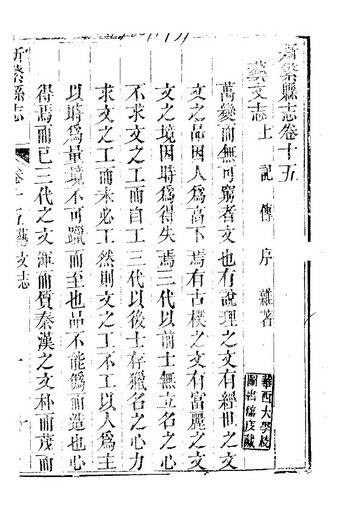 新繁縣志卷十五
藝文志上 記 傳 序 雜著
萬變而無可窮者文也有說理之文有經世之文
文之品因人爲高下焉有古樸之文有富麗之文
文之境因時爲得失焉三代以前士無立名之心
不求文之工而自工三代以後士存獵名之心力
求文之工而未必工然則文之工不工以人爲主
以時爲量境不可躐而至也品不能僞而造也心
得焉而已三代之文渾而質秦漢之文朴而茂而
新繁縣志
卷十五藝文志
一
華西大學校
圖書館庋藏